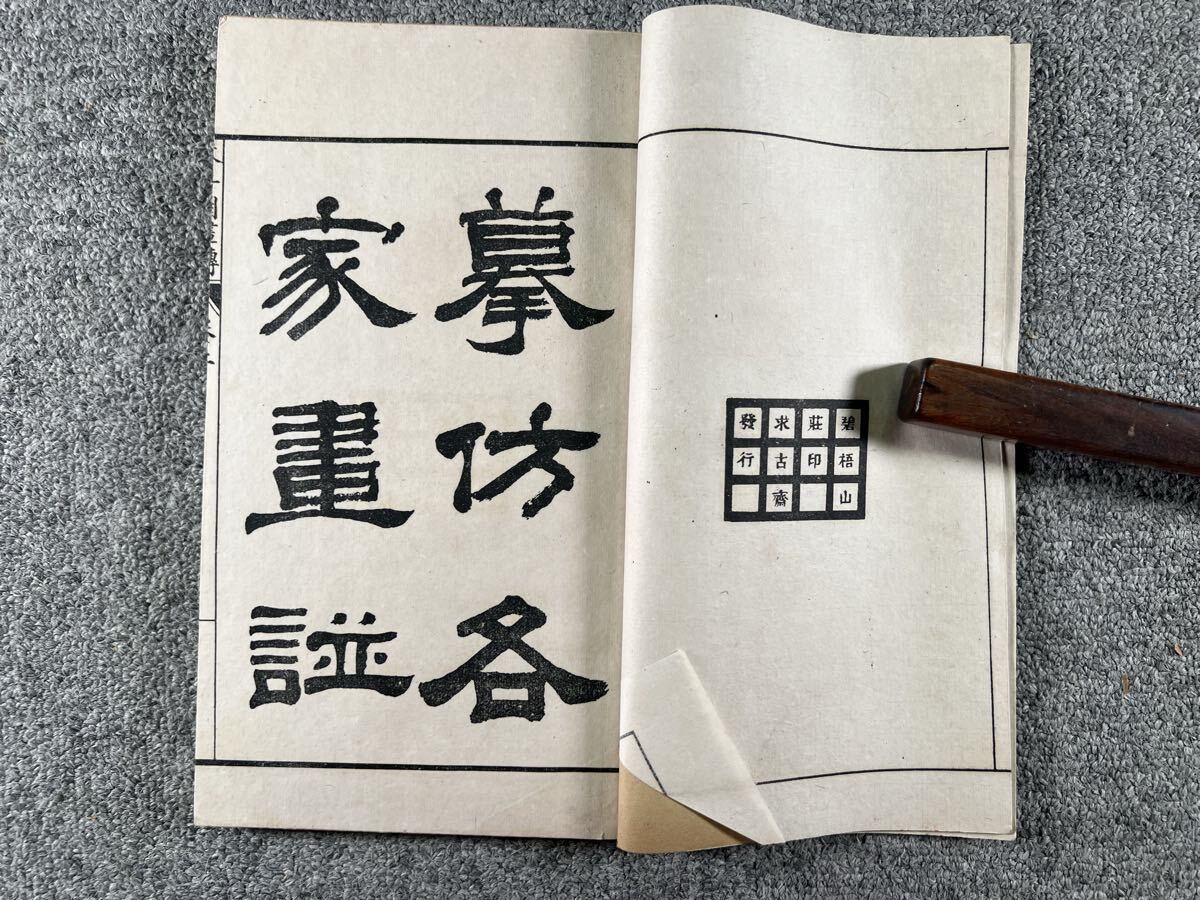 碧梧山
莊印
求古齋
發行
摹仿各
家畫諩